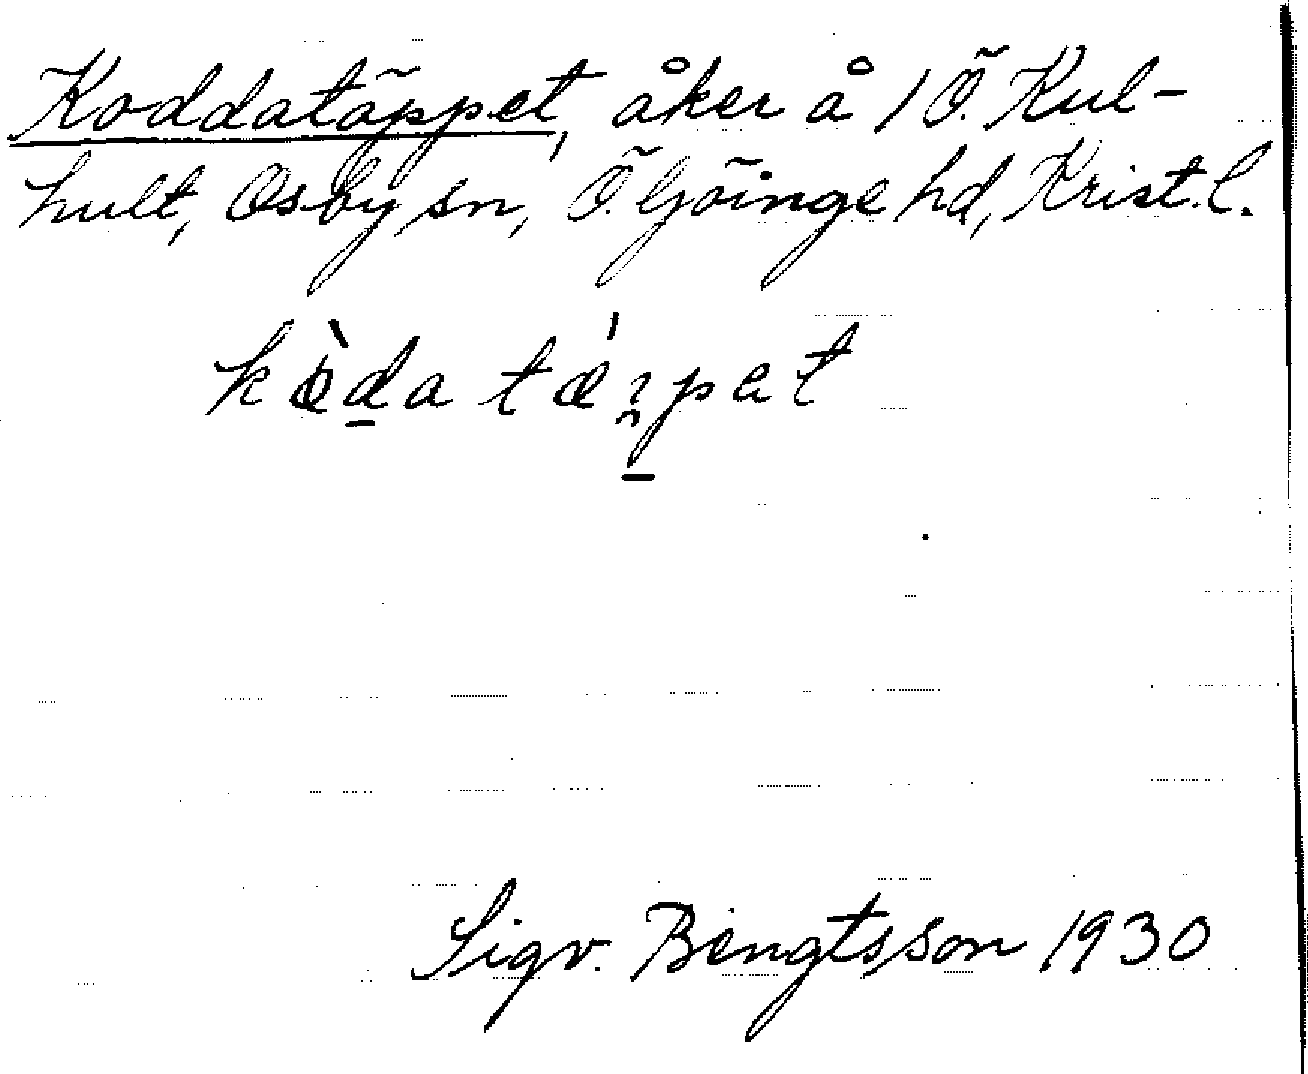 Koddatäppet, åker å 1 Ö. Kul-
hult, Osby sn, Ö. Göinge hd, Krist. l.
Sigv. Bengtsson 1930